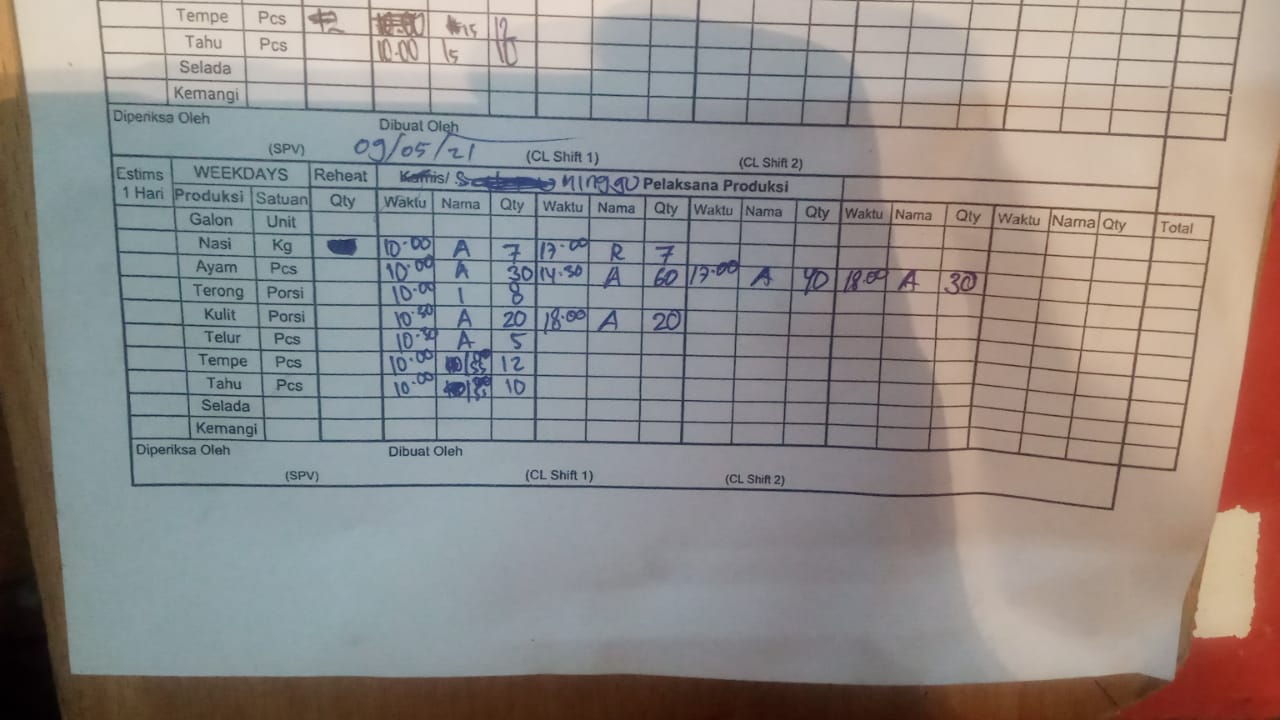 Tempe Pcs 15 12
Tahu Pcs 10.00 15 10
Selada
Kemangi
Diperiksa Oleh Dibuat Oleh
(SPV) 09/05/21 (CL Shift 1) (CL Shift 2)
Estims WEEKDAYS Reheat Kamis/ minggu Pelaksana Produksi
1 Hari Produksi Satuan Qty Waktu Nama Qty Waktu Nama Qty Waktu Nama Qty Waktu Nama Qty Waktu Nama Qty Total
Galon Unit
Nasi Kg 10.00 A 7 17.00 R 7
Ayam Pcs 10.00 A 30 14.30 A 60 17.00 A 40 18.00 A 30
Terong Porsi 10.00 1 8
Kulit Porsi 10.30 A 20 18.00 A 20
Telur Pcs 10.30 A 5
Tempe Pcs 10.00 12
Tahu Pcs 10.00 10
Selada
Kemangi
Diperiksa Oleh Dibuat Oleh
(SPV) (CL Shift 1) (CL Shift 2)